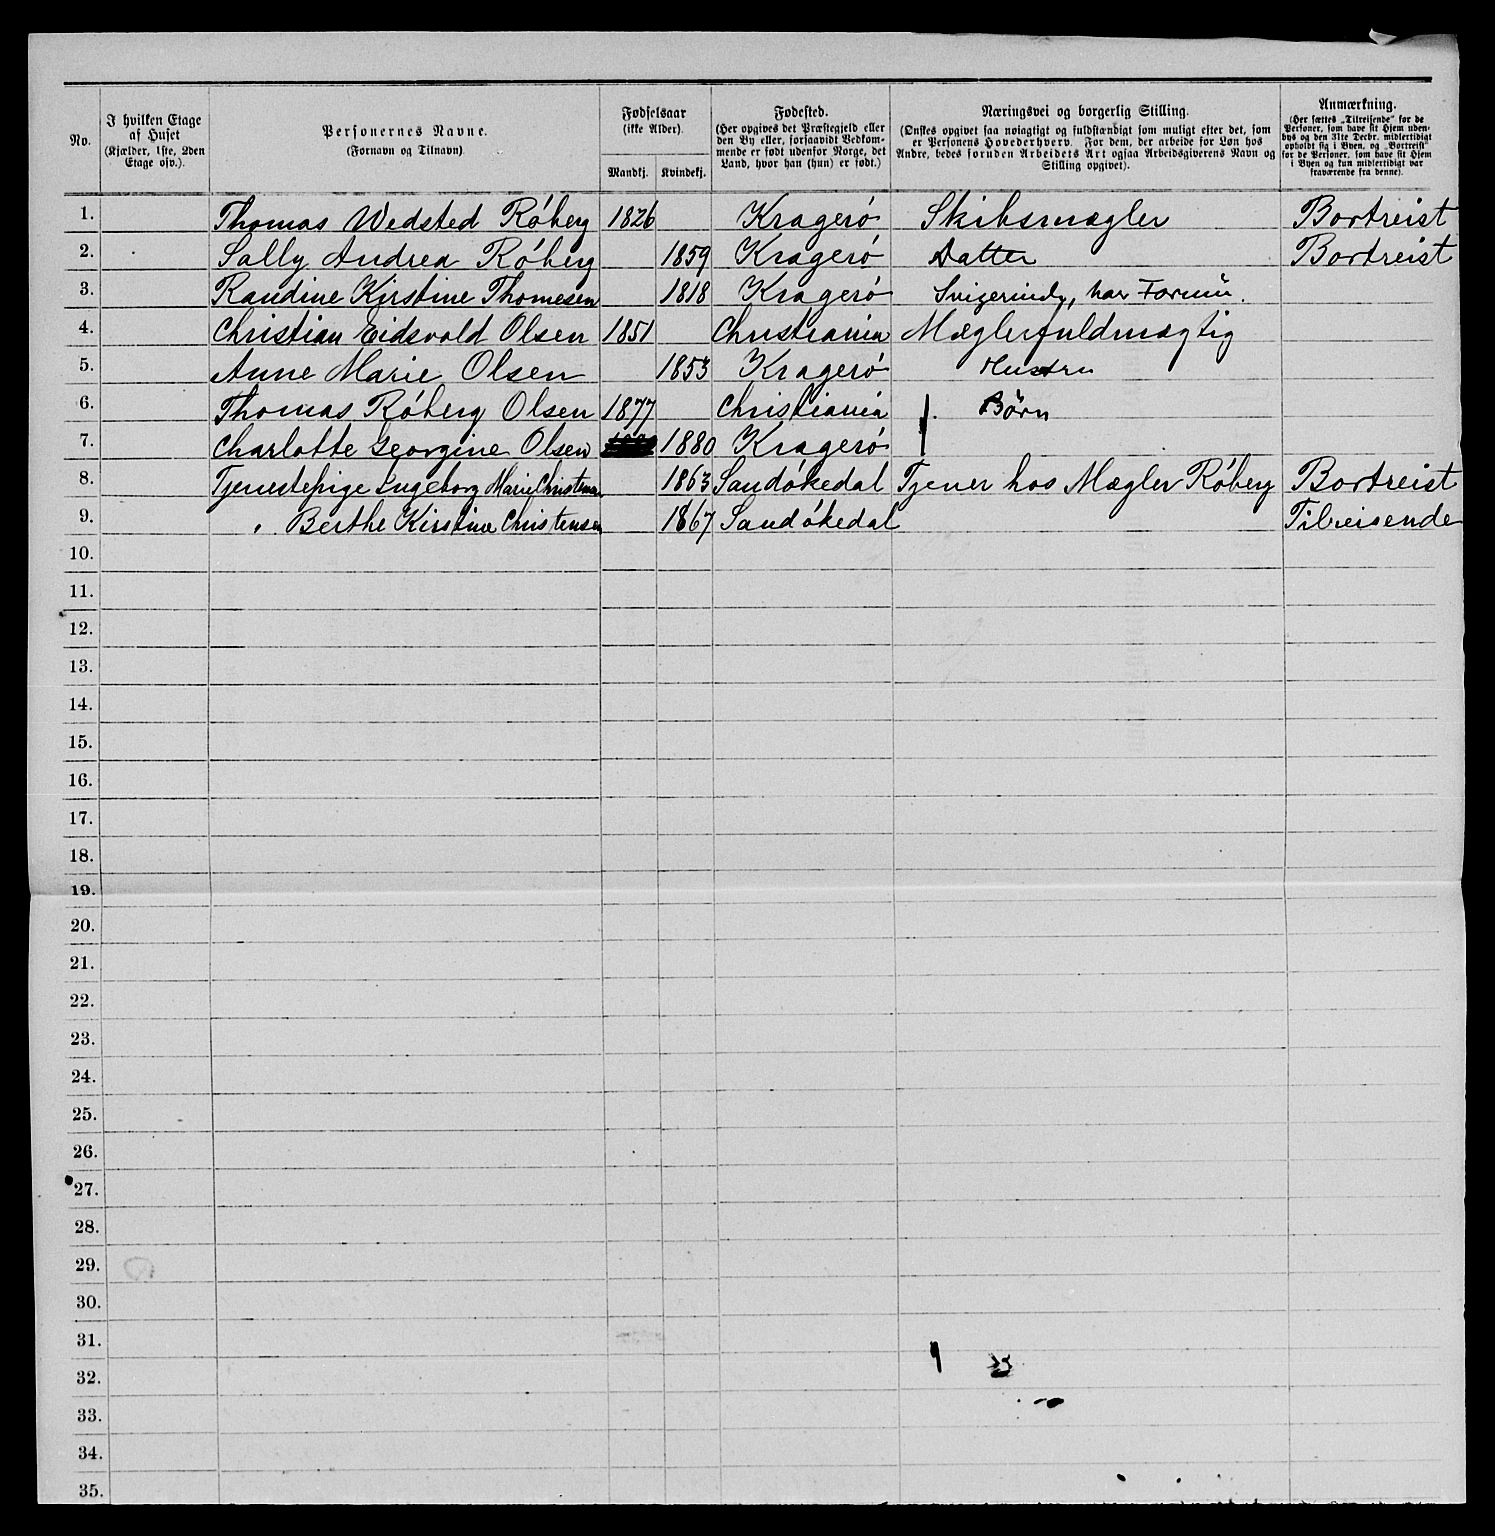 No.
I hvilken Etage
af Huset
(Kjælder, 1ste, 2den
Etage osv.).
Personernes Navne.
(Fornavn og Tilnavn)
Fødselsaar
(ikke Alder).
Mandkj. Kvindekj.
Fødested.
(Her opgives det Præstegjeld eller
den By eller, forsaavidt Vedkom-
mende er født udenfor Norge, det
Land, hvor han (hun) er født.)
Næringsvei og borgerlig Stilling.
(Ønskes opgivet saa nøiagtigt og fuldstændigt som muligt efter det, som
er Personens Hovederhverv. For dem, der arbeide for Løn hos
Andre, bedes foruden Arbeidets Art ogsaa Arbeidsgiverens Navn og
Stilling opgivet).
Anmærkning.
(Her sættes „Tilreisende" for de
Personer, som have sit Hjem uden-
bys og den 31te Decbr. midlertidigt
opholdt sig i Byen, og „Bortreist"
for de Personer, som have sit Hjem
i Byen og kun midlertidigt var
fraværende fra denne).
1. Thomas Wedsted Róberg 1826 Krageró Skibsmægler Bortreist
2. Sally Andrea Róberg 1859 Krageró Datter Bortreist
3. Randine Kirstine Thomesen 1818 Krageró Svigerinde, har Formue.
4. Christian Eidsvold Olsen 1851 Christiania Mæglerfuldmægtig
5. Anne Marie Olsen 1853 Krageró Hustru
6. Thomas Róberg Olsen 1877 Christiania Børn
7. Charlotte Georgine Olsen 1880 Krageró
8. Tjenestepige Ingeborg Marie Christensen 1863 Sandókedal Tjener hos Mægler Róberg Bortreist
9. " Berthe Kirstine Christensen 1867 Sandókedal Tilreisende
10.
11.
12.
13.
14.
15.
16.
17.
18.
19.
20.
21.
22.
23.
24.
25.
26.
27.
28.
29.
30.
31.
32.
33.
34.
35.